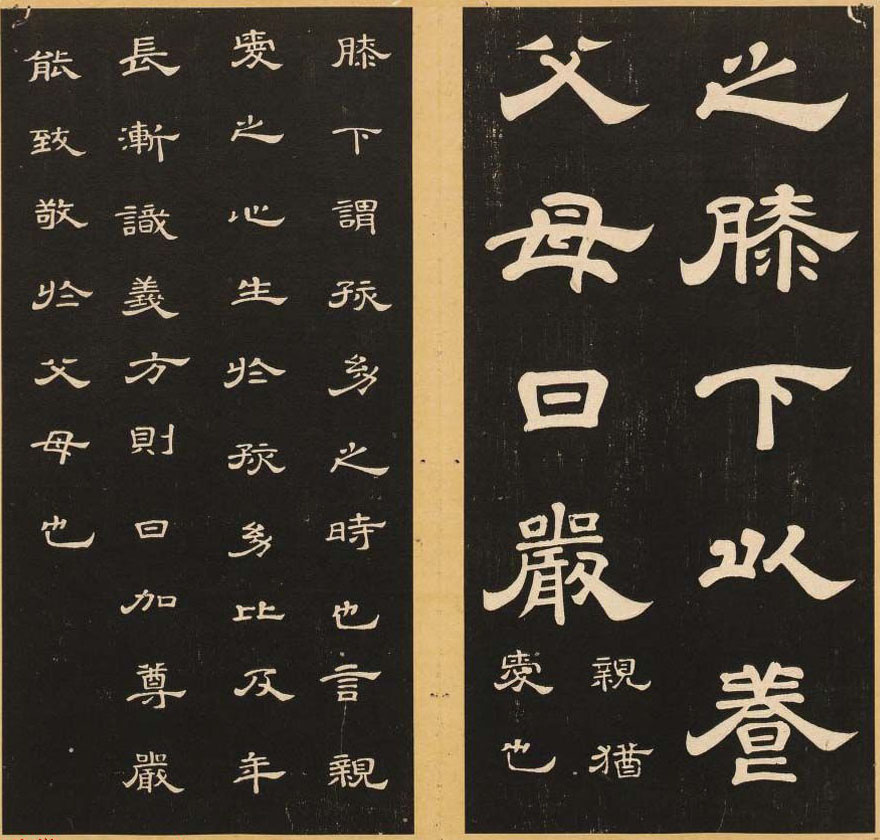 之膝下以養
父母日嚴
親猶
愛也
膝下謂孩幼之時也言親
愛之心生於孩幼比及年
長漸識義方則日加尊嚴
能致敬於父母也